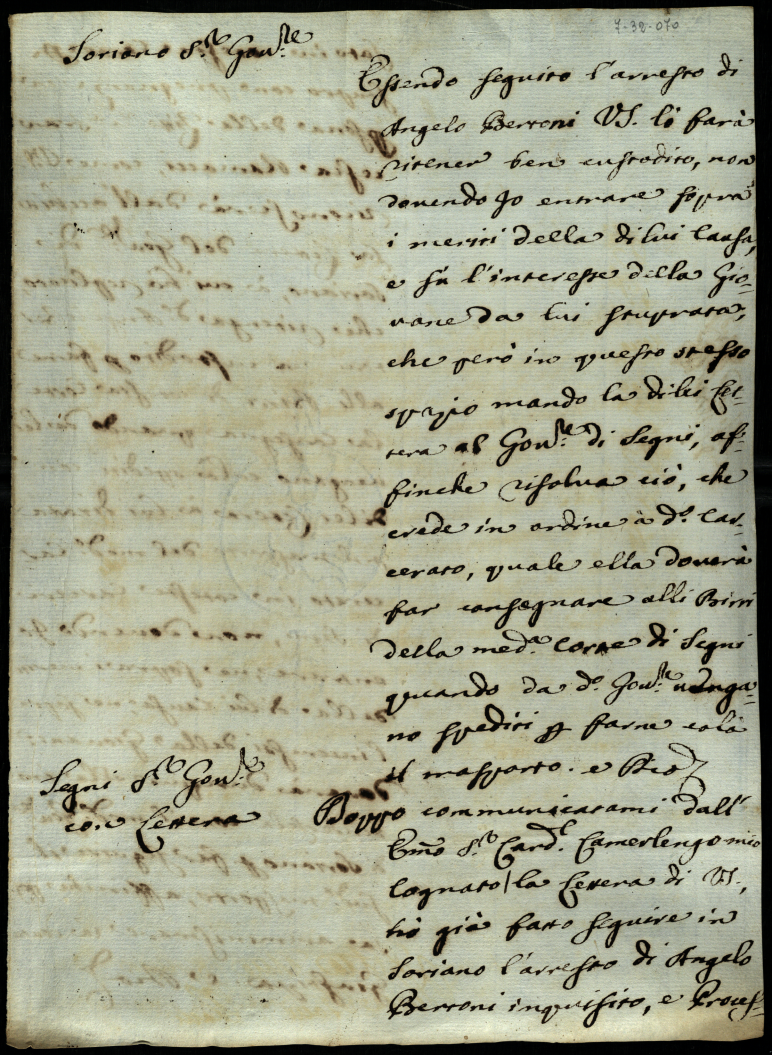 7-32-070
Soriano S.r Gov.re
Essendo seguito l'arresto di
Angelo Berroni VS. lo farà
ritener ben custodito, non
dovendo Jo entrare sopra
i meriti della di lui Causa,
e sù l'interesse della Gio-
vane da lui stuprata,
che però in questo stesso
spazio mando la di lei Let-
tera al Gov.re di Segni, af-
finche risolva ciò, che
crede in ordine à d.o Car-
cerato, quale ella doverà
far consegnare alli Birri
della med.a Corte di Segni
quando da d.o Gov.re venga-
no spediti p farne colà
il trasporto. e
Segni S.r Gov.re
con Lettera
Doppo communicatami dall'
Emo S.r Card.l Camerlengo mio
Cognato la Lettera di VS.,
hò già fatto seguire in
Soriano l'arresto di Angelo
Berroni inquisito, e Proces-